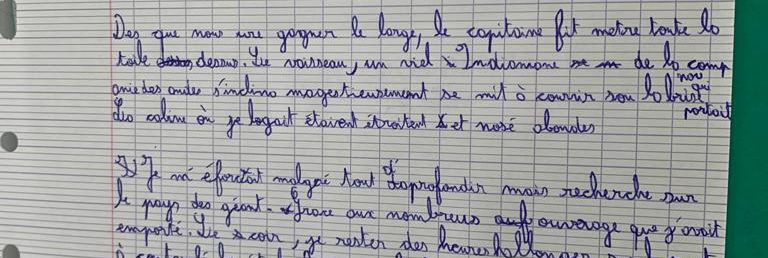 Des que nous ure gagner le large, le capitaine fit metre toute la
toile dessus. Le vaisseau, un viel Indiamane de la comp
anie des andes s'inclina magestieusement se mit à courrir sou la brise
nou qui
portait
Les cabine où je logait étaient étroitent et mosé abondes
Je m'éforcait malgré tout d'aprofondir mais recherche sur
le pays des géant. Grace aux nombreus ouvrage que j'avait
emporté. Le soir, je rester des heures